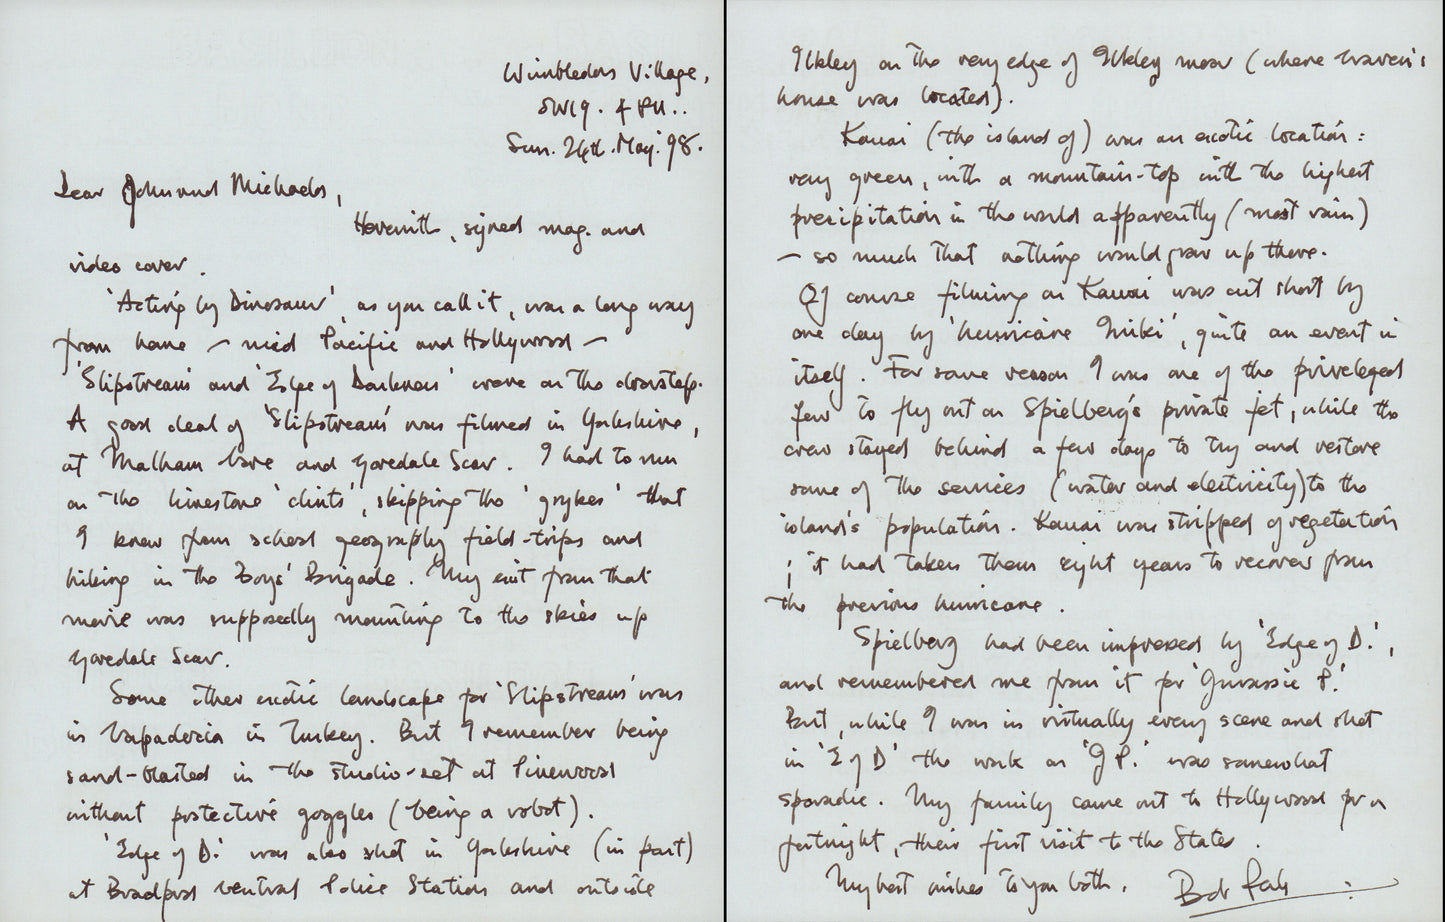 Wimbledon Village,
SW19.
Sun. 24th. May. '98.
Dear John and Michaelos,
Herewith, signed mag. and
video cover.
'Acting by Dinosaur', as you call it, was a long way
from home – mid Pacific and Hollywood –
'Slipstream' and 'Edge of Darkness' were on the doorstep.
A good deal of 'Slipstream' was filmed in Yorkshire,
at Malham Cove and Goredale Scar. I had to run
on the limestone 'clints', skipping the 'grykes' that
I knew from school geography field-trips and
hiking in the Boys' Brigade. My exit from that
movie was supposedly mounting to the skies up
Goredale Scar.
Some other exotic landscape for 'Slipstream' was
in Capadocia in Turkey. But I remember being
sand-blasted in the studio-set at Pinewood
without protective goggles (being a robot).
'Edge of D.' was also shot in Yorkshire (in part)
at Bradford Central Police Station and outside
Ilkley on the very edge of Ilkley moor (where Craven's
house was located).
Kauai (the island of) was an exotic location:
very green, with a mountain-top with the highest
precipitation in the world apparently (most rain)
– so much that nothing would grow up there.
Of course filming on Kauai was cut short by
one day by 'hurricane Iniki', quite an event in
itself. For some reason I was one of the priveleged
few to fly out on Spielberg's private jet, while the
crew stayed behind a few days to try and restore
some of the services (water and electricity) to the
island's population. Kauai was stripped of vegetation
; it had taken them eight years to recover from
the previous hurricane.
Spielberg had been impressed by 'Edge of D.',
and remembered me from it for 'Jurassic P.'
But, while I was in virtually every scene and shot
in 'E of D' the work on 'J P.' was somewhat
sporadic. My family came out to Hollywood for a
fortnight, their first visit to the States.
My best wishes to you both. Bob Peck